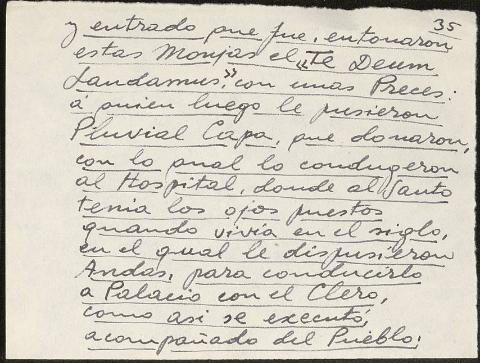 35
y entrado que fue, entonaron
estas Monjas el «Te Deum
Laudamus», con unas Preces:
á quien luego le pusieron
Pluvial Capa, que donaron,
con lo qual lo condugeron
al Hospital, donde al Santo
tenia los ojos puestos
quando vivia en el siglo,
en el qual le dispusieron
Andas, para conducirlo
a Palacio con el Clero,
como asi se executó,
acompañado del Pueblo: